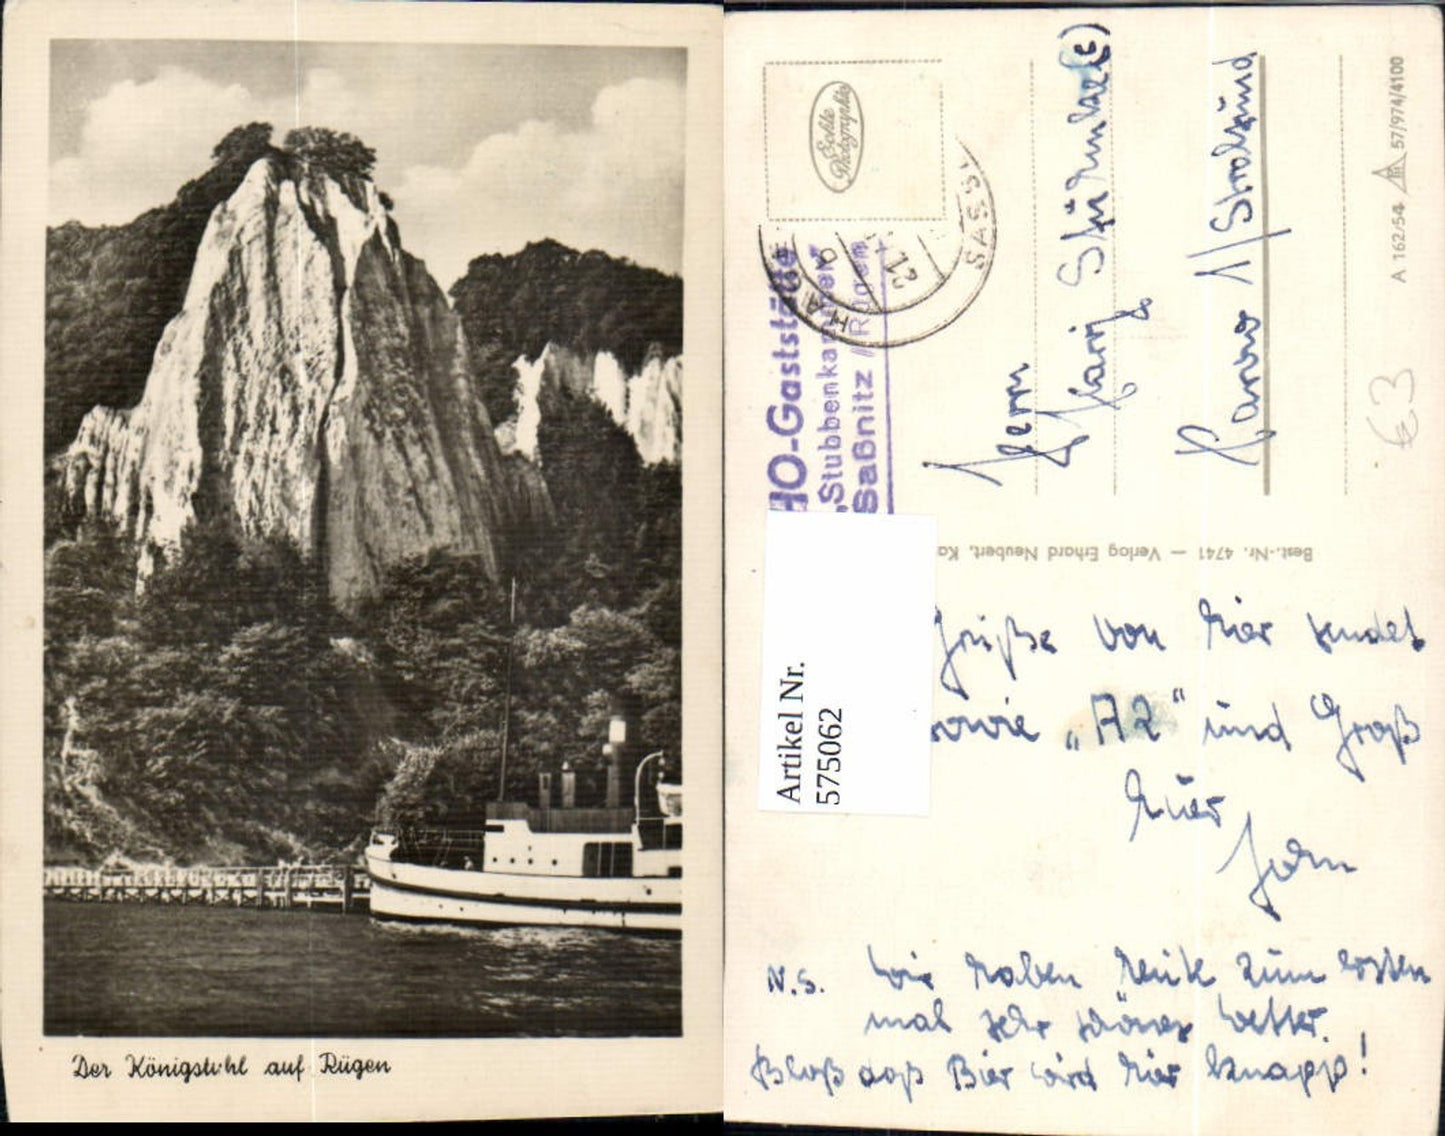 Der Königstuhl auf Rügen
Echte
Photographie
SASS
HAGEN
22
HO-Gaststätte
„Stubbenkammer"
Saßnitz / Rügen
Herrn
Harry
Parow / Stralsund
A 162/54 57/974/4100
€3
Best.-Nr. 4741 — Verlag Erhard Neubert, Ka
Artikel Nr.
575062
Grüße von hier sendet
sowie „A2" und Groß
Jörn
N.S. Wir haben heute zum ersten
mal sehr schönes Wetter.
Bloß das Bier wird hier knapp!